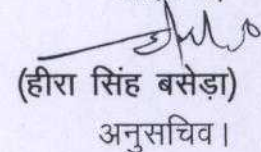 (हीरा सिंह बसेड़ा)
अनुसचिव।